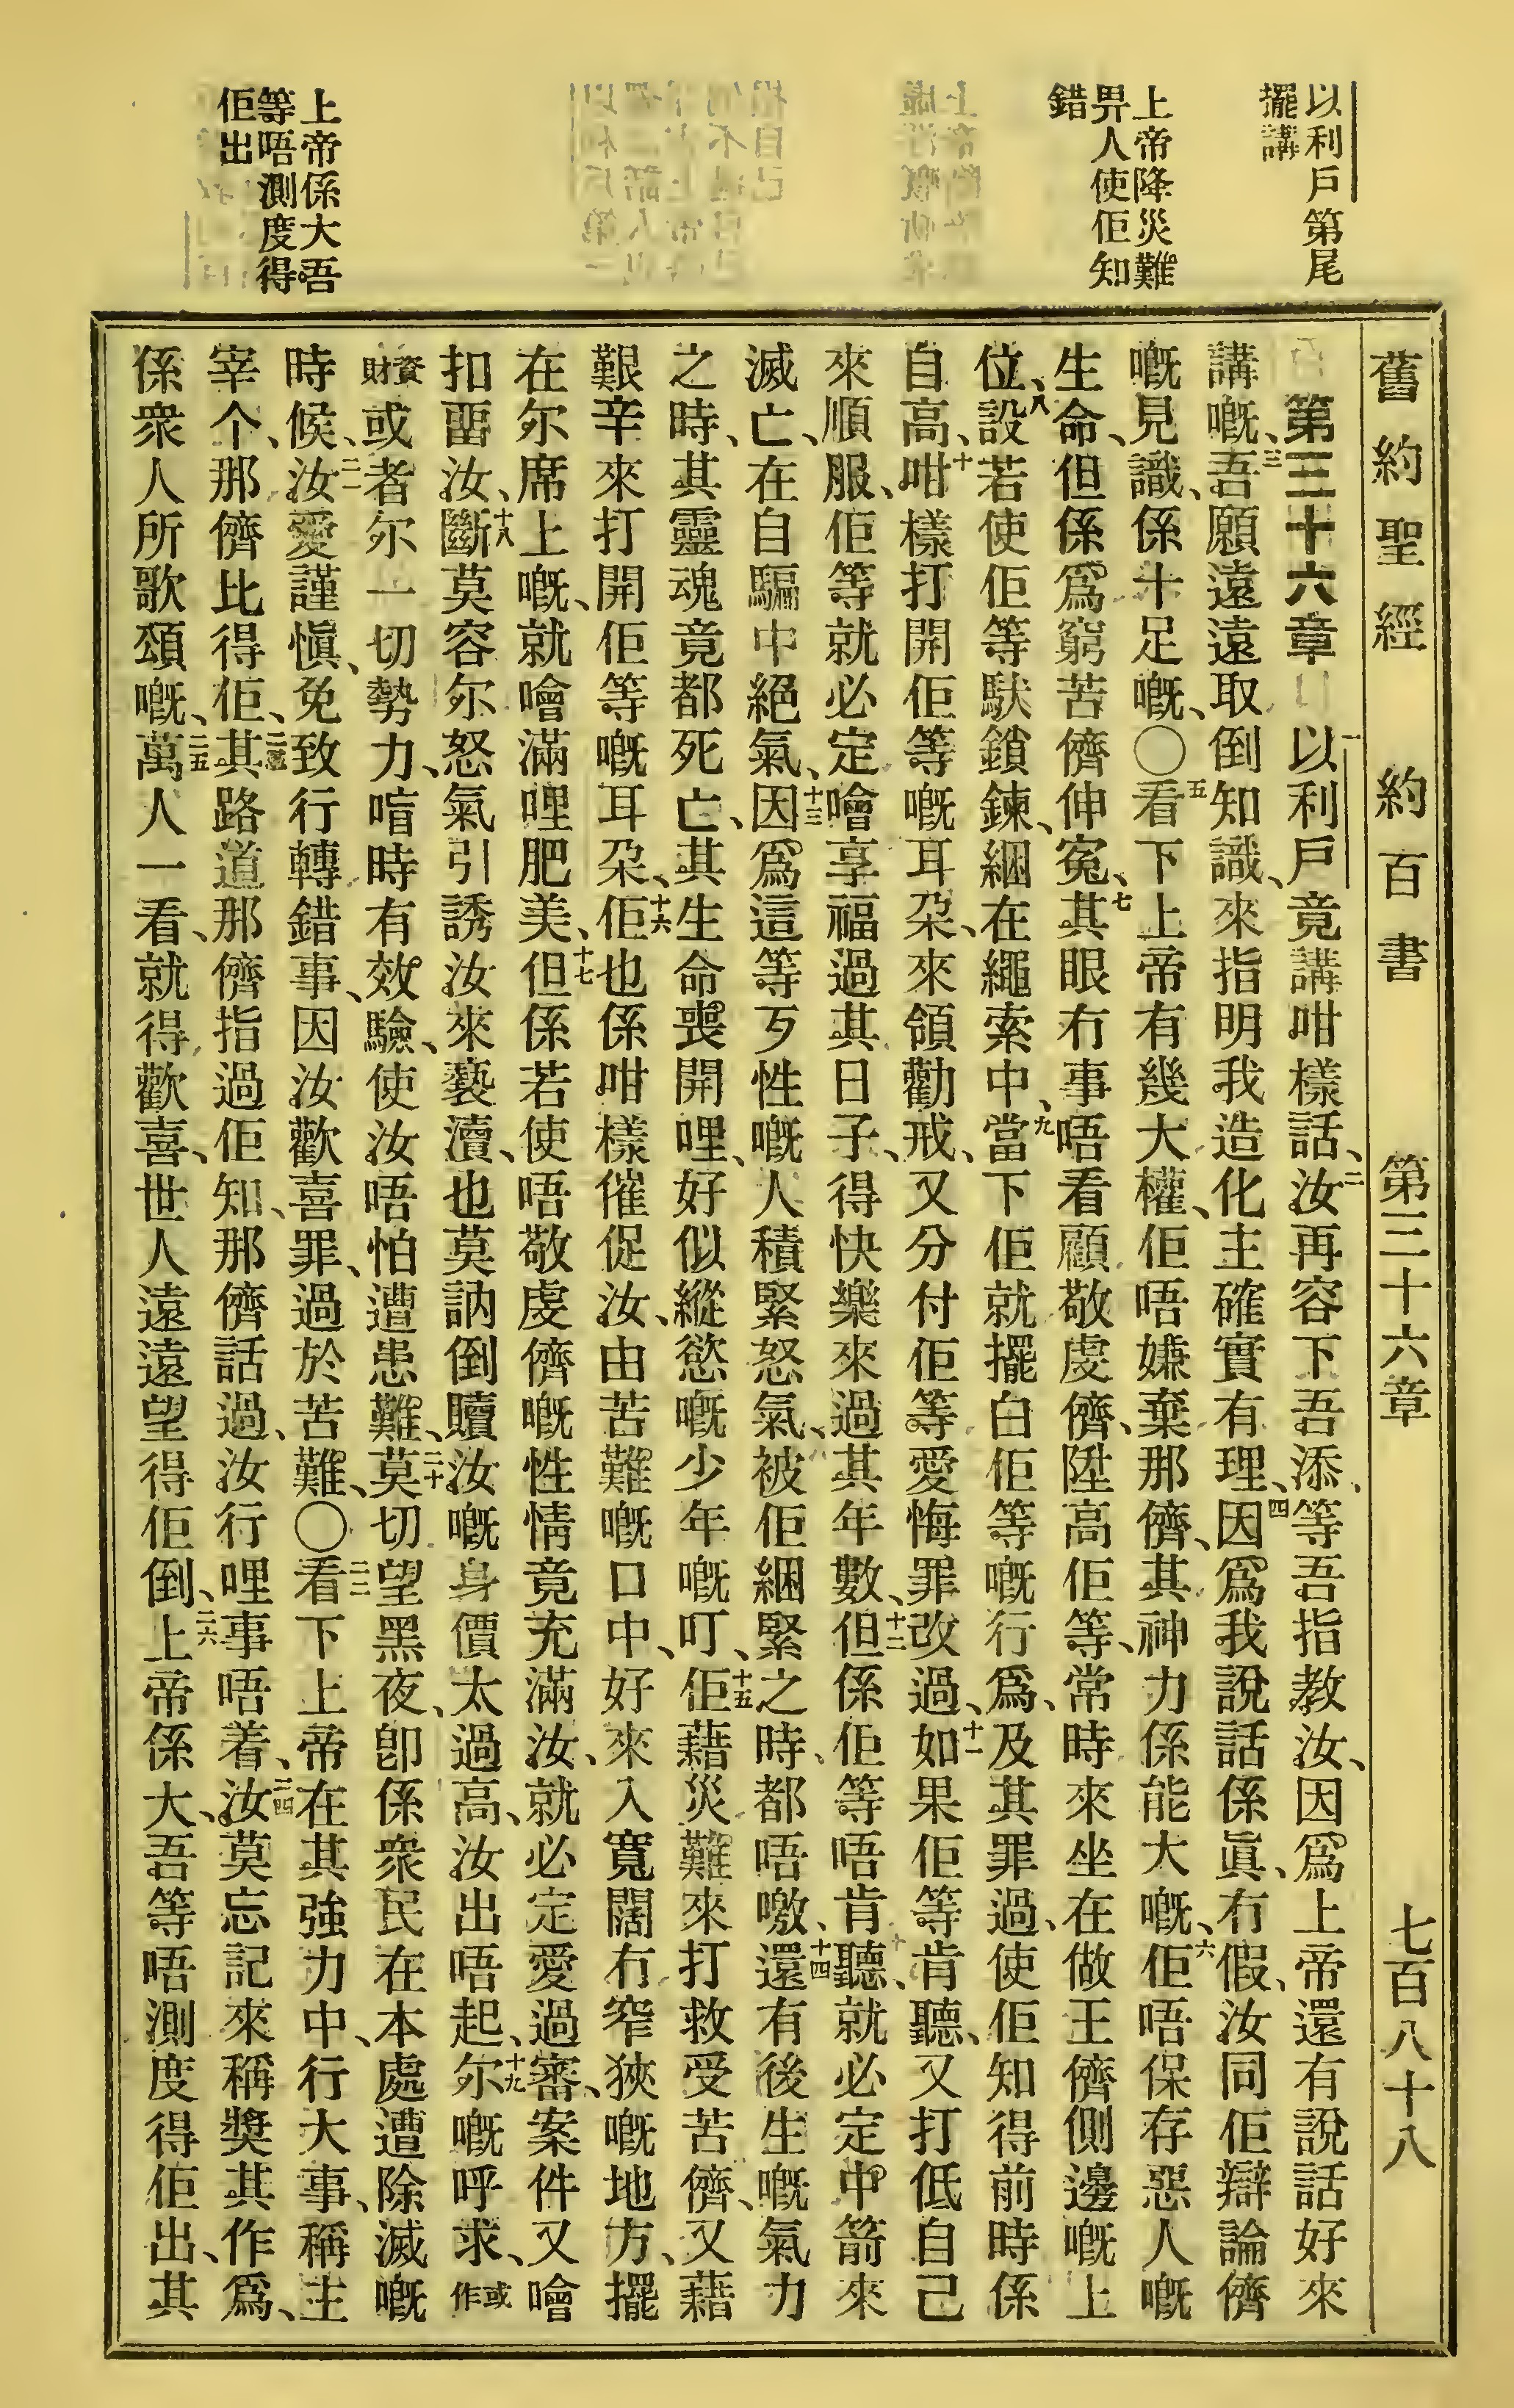 以利戶第尾
擺講
上帝降災難
畀人使佢知
錯
上帝係大吾
等唔測度得
佢出
舊約聖經　約百書　第三十六章　七百八十八
第三十六章　一以利戶竟講咁樣話、二汝再容下吾添、等吾指教汝、因爲上帝還有說話好來
講嘅、三吾願遠遠取倒知識、來指明我造化主確實有理、四因爲我說話係眞、冇假、汝同佢辯論儕
嘅見識、係十足嘅、〇五看下上帝有幾大權、佢唔嫌棄那儕、其神力係能大嘅、六佢唔保存惡人嘅
生命、但係爲窮苦儕伸寃、七其眼冇事唔看顧敬虔儕、陞高佢等、常時來坐在做王儕側邊嘅上
位、八設若使佢等䭾鎖鍊、綑在繩索中、九當下佢就擺白佢等嘅行爲、及其罪過、使佢知得前時係
自高、十咁樣打開佢等嘅耳朶、來領勸戒、又分付佢等愛悔罪改過、十一如果佢等肯聽、又打低自己
來順服、佢等就必定噲享福過其日子、得快樂來過其年數、十二但係佢等唔肯聽、就必定中箭來
滅亡、在自騙中絕氣、十三因爲這等歹性嘅人積緊怒氣、被佢綑緊之時、都唔噭、十四還有後生嘅氣力
之時、其靈魂竟都死亡、其生命喪開哩、好似縱慾嘅少年嘅叮、十五佢藉災難來打救受苦儕、又藉
艱辛來打開佢等嘅耳朶、十六佢也係咁樣催促汝、由苦難嘅口中、好來入寬闊冇窄狹嘅地方、擺
在尔席上嘅、就噲滿哩肥美、十七但係若使唔敬虔儕嘅性情竟充滿汝、就必定愛過審、案件又噲
扣畱汝、十八斷莫容尔怒氣引誘汝來褻瀆、也莫訥倒贖汝嘅身價太過高、汝出唔起、十九尔嘅呼求、或作
資財或者尔一切勢力、喑時有效驗、使汝唔怕遭患難、二十莫切望黑夜、卽係衆民在本處遭除滅嘅
時候、二一汝愛謹愼、免致行轉錯事、因汝歡喜罪、過於苦難、〇二二看下上帝在其強力中、行大事、稱主
宰个、那儕比得佢、二三其路道那儕指過佢知、那儕話過、汝行哩事唔着、二四汝莫忘記來稱獎其作爲、
係衆人所歌頌嘅、二五萬人一看、就得歡喜、世人遠遠望得佢倒、二六上帝係大、吾等唔測度得佢出、其